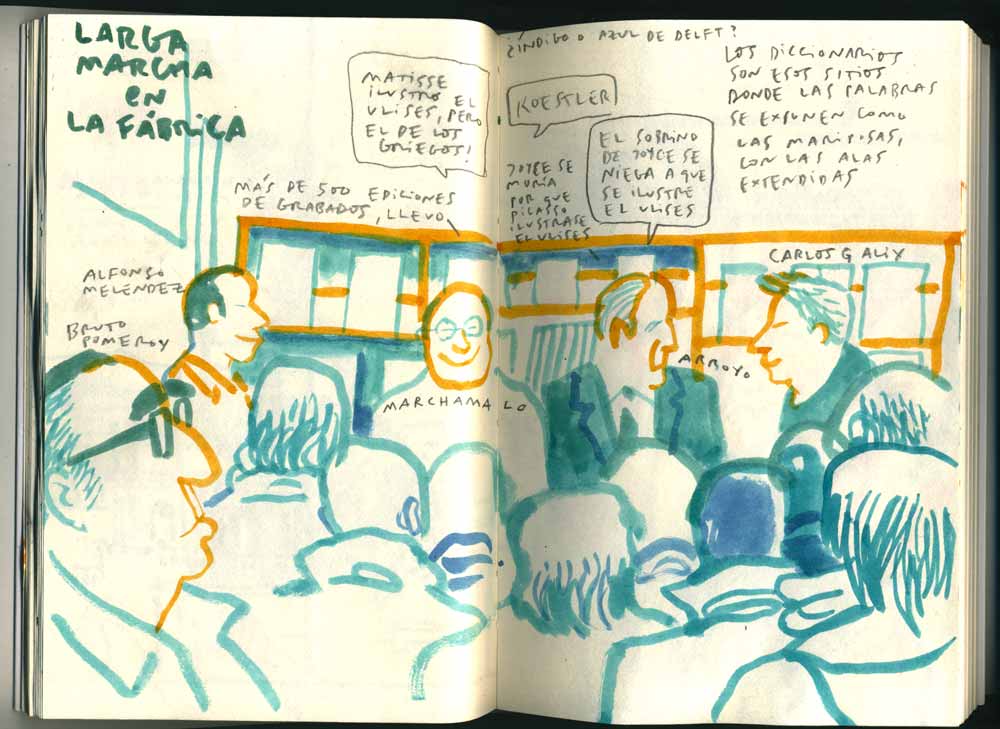 LARGA
MARCHA
EN
LA FÁBRICA
MATISSE
ILUSTRÓ EL
ULISES, PERO
EL DE LOS
GRIEGOS!
MÁS DE 500 EDICIONES
DE GRABADOS, LLEVO
ALFONSO
MELENDEZ
BRUTO
POMEROY
MARCHAMALO
¿ÍNDIGO O AZUL DE DELFT?
KOESTLER
JOYCE SE
MORÍA
POR QUE
PICASSO
ILUSTRASE
EL ULISES
EL SOBRINO
DE JOYCE SE
NIEGA A QUE
SE ILUSTRE
EL ULISES
LOS DICCIONARIOS
SON ESOS SITIOS
DONDE LAS PALABRAS
SE EXPONEN COMO
LAS MARIPOSAS,
CON LAS ALAS
EXTENDIDAS
CARLOS G ALIX
ARROYO